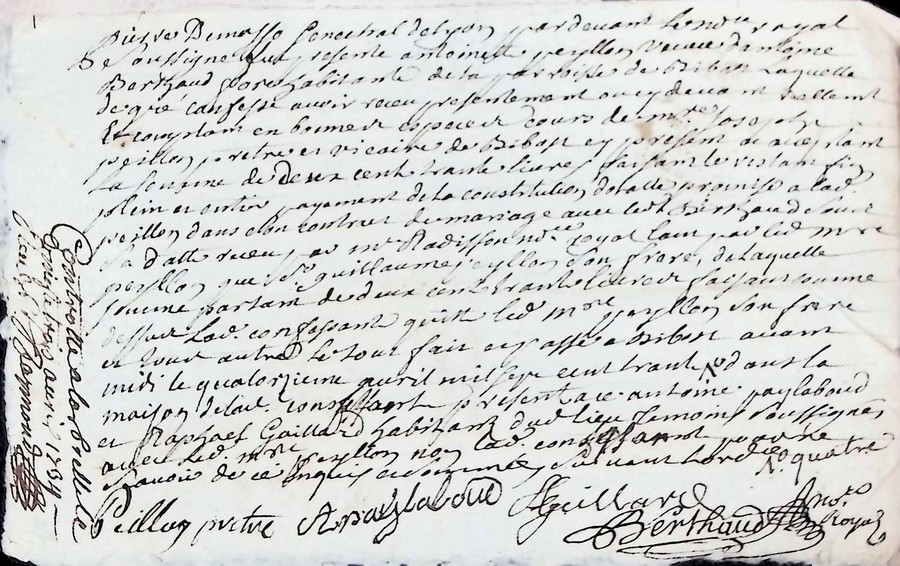 pierre Dumas so senechal de lyon pardevant le nore royal
soussigne fut presente antoinette peyllon veuve d'antoine
Berthaud habitante de la parroisse de Bibost Laquelle
de gré confesse avoir receu presentement ou cy devant reellemt
Et comptam en bonnes especes de cours de mre Joseph
peillon pretre et vicaire de Bibost cy present et aceptant
La somme de deux cent trante livres faisant le restan fin
plein et entier payement de la constitution dotalle promise a lad.
peillon dans son contrect de mariage avec led Berthaud Sous
sa datte receu par me Radisson nore royal tam par led mre
peyllon que sr guillaume peyllon son frere, de laquelle
somme partant de deux cent trante livres faisant somme
dessus Lad. confessante quitte led mre peyllon son frere
et tous autres Le tout fait et passé a Bibost avant
midi le quatorzieme avril mil sept cent trante dans la
maison de lad. confessante presents antoine paylaboud
et Raphael Gaillard habitant dud lieu temoins soussignés
avec led. mre peyllon non lad. confessante pour ne
scavoir de ce enquis et sommée, suivant lordce quatre
Peillon pretre A paylaboud Gaillard
Berthaud nore Royal
Controllé a larbrelle le
avril 1734